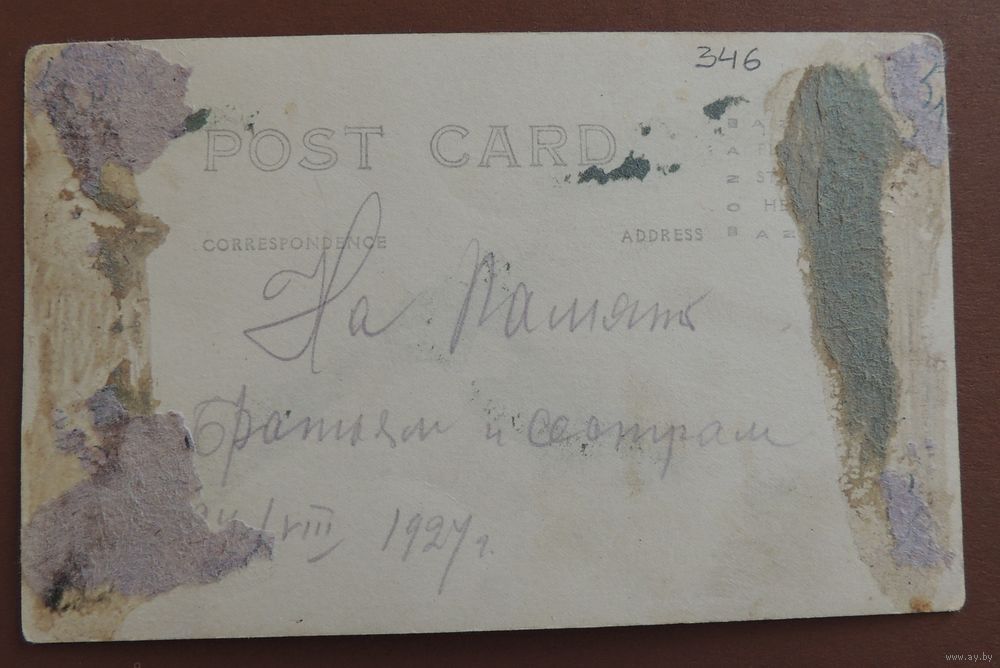 346
POST CARD
CORRESPONDENCE
ADDRESS
На Память
Братьям и сестрам
VIII 1927 г.
www.ay.by